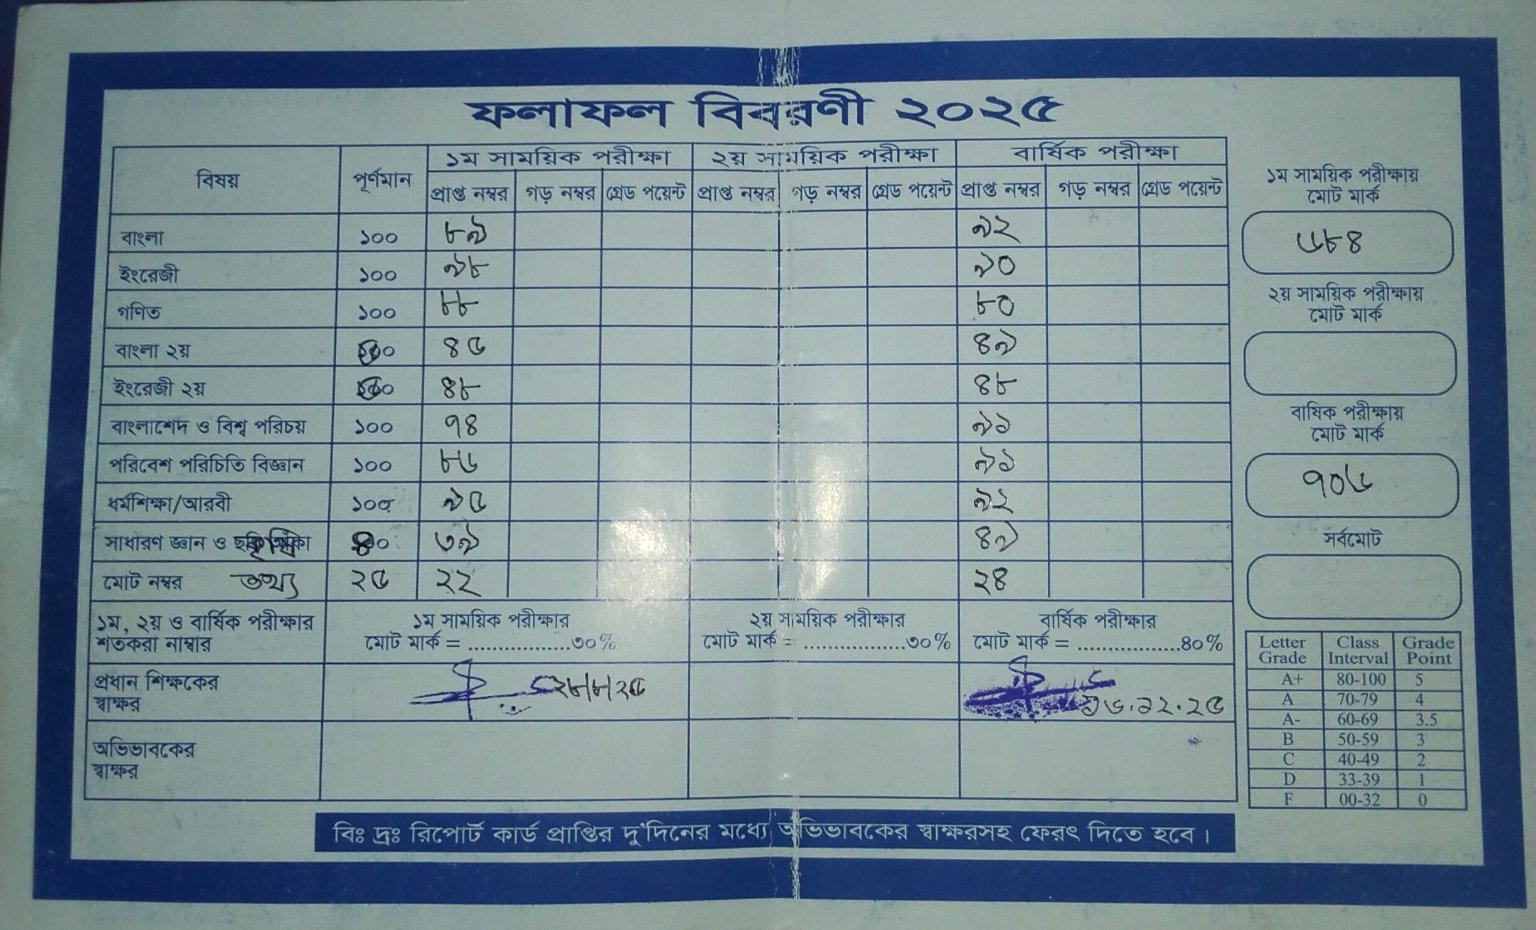 ফলাফল বিবরণী ২০২৫
বিষয় পূর্ণমান ১ম সাময়িক পরীক্ষা ২য় সাময়িক পরীক্ষা বার্ষিক পরীক্ষা
প্রাপ্ত নম্বর গড় নম্বর গ্রেড পয়েন্ট প্রাপ্ত নম্বর গড় নম্বর গ্রেড পয়েন্ট প্রাপ্ত নম্বর গড় নম্বর গ্রেড পয়েন্ট
বাংলা ১০০ ৮৯ ৯২
ইংরেজী ১০০ ৯৮ ৯০
গণিত ১০০ ৮৮ ৮০
বাংলা ২য় ৪৫ ৪৯
ইংরেজী ২য় ৪৮ ৪৮
বাংলাশেদ ও বিশ্ব পরিচয় ১০০ ৭৪ ৯১
পরিবেশ পরিচিতি বিজ্ঞান ১০০ ৮৬ ৯১
ধর্মশিক্ষা/আরবী ১০০ ৯৫ ৯২
সাধারণ জ্ঞান ও ৩৯ ৪৯
মোট নম্বর তথ্য ২৫ ২২ ২৪
১ম, ২য় ও বার্ষিক পরীক্ষার
শতকরা নাম্বার
১ম সাময়িক পরীক্ষার
মোট মার্ক = ..................৩০%
২য় সাময়িক পরীক্ষার
মোট মার্ক = ..................৩০%
বার্ষিক পরীক্ষার
মোট মার্ক = ..................৪০%
প্রধান শিক্ষকের
স্বাক্ষর
২৮/৮/২৫
১৬.১২.২৫
অভিভাবকের
স্বাক্ষর
বিঃ দ্রঃ রিপোর্ট কার্ড প্রাপ্তির দু'দিনের মধ্যে অভিভাবকের স্বাক্ষরসহ ফেরৎ দিতে হবে।
১ম সাময়িক পরীক্ষায়
মোট মার্ক
৬৮৪
২য় সাময়িক পরীক্ষায়
মোট মার্ক
বার্ষিক পরীক্ষায়
মোট মার্ক
৭০৬
সর্বমোট
Letter Grade Class Interval Grade Point
A+ 80-100 5
A 70-79 4
A- 60-69 3.5
B 50-59 3
C 40-49 2
D 33-39 1
F 00-32 0